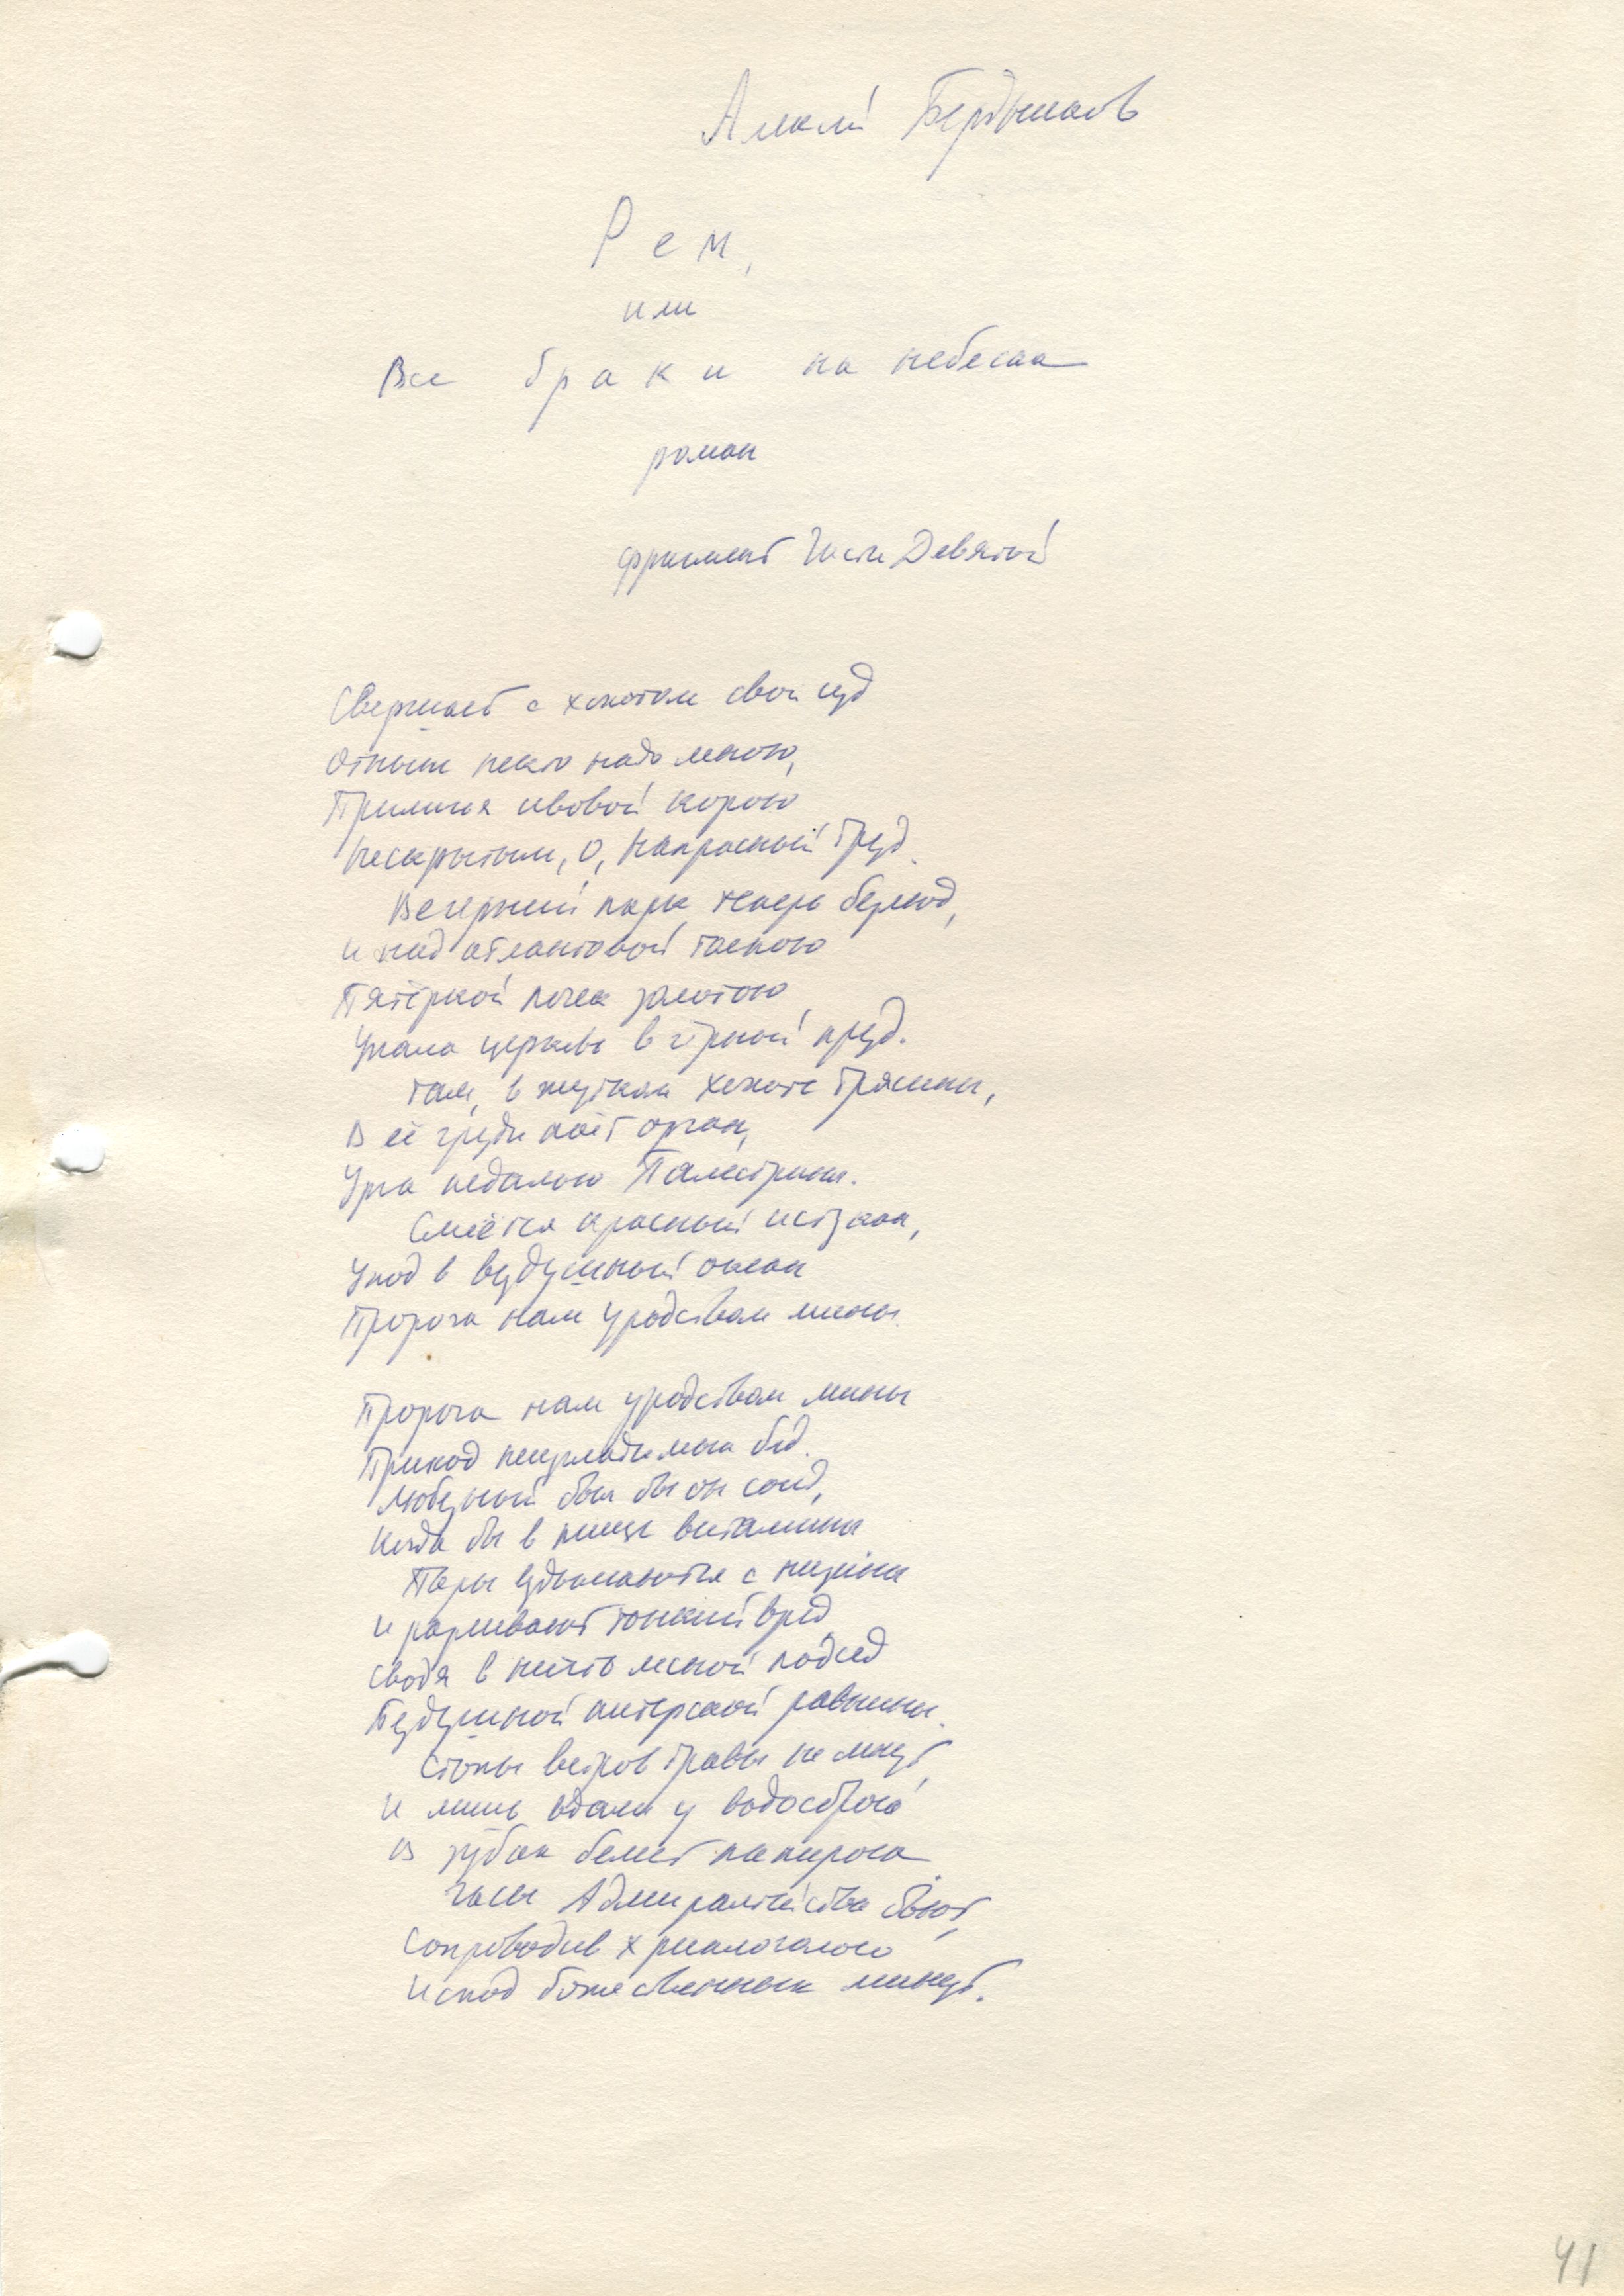 Алексей Бердников
Рем,
или
Все браки на небесах
роман
фрагмент Части Девятой
Свершает с хохотом свой суд
Отныне некто надо мною,
ивовой корою
о, напрасный труд.
Вечерний парк теперь безлюд,
И над атлантовой тоскою
Пятёркой почек золотою
Упала церковь в чёрный пруд.
Там, в жутком хохоте трясины,
В её груди поёт орган,
Урча педалью Палестрины.
Смеётся красный истукан,
Уход в воздушный океан
Пророча нам уродством мины.
Пророча нам уродством мины
Приход неизгладимых бед.
Любезный был бы он сосед,
Когда бы в пищу витамины
Пары вздымаются с низины
И разливают тонкий вред,
Сводя в ничто лесной подсед
Бездушной питерской равнины.
Стопы ветров травы не мнут,
И лишь вдали у водосброса
В зубах белеет папироса.
Часы Адмиралтейства бьют,
Сопроводив хрипло
Исход божественных минут.
41